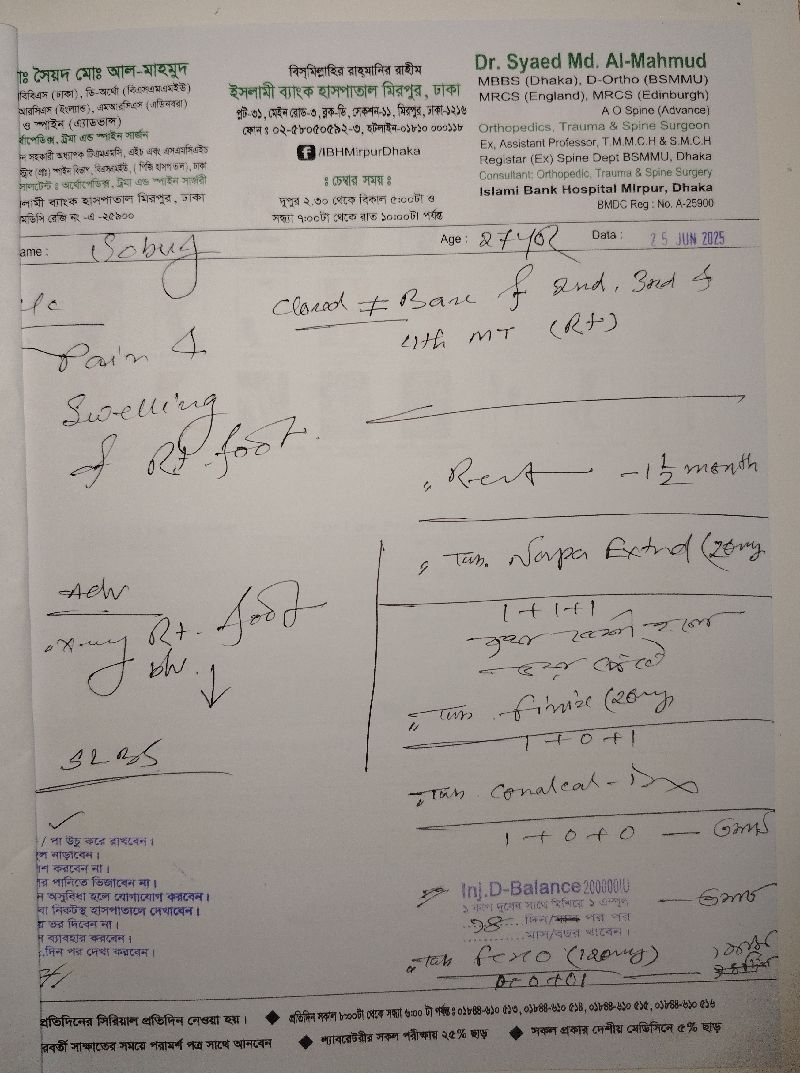 ঃ সৈয়দ মোঃ আল-মাহমুদ
বিবিএস (ঢাকা), ডি-অর্থো (বিএসএমএমইউ)
আরসিএস (ইংল্যান্ড), এমআরসিএস (এডিনবরা)
ও স্পাইন (এ্যাডভান্স)
র্থোপেডিক্স, ট্রমা এন্ড স্পাইন সার্জন
সালটেন্ট : অর্থোপেডিক্স, ট্রমা এন্ড স্পাইন সার্জারী
লামী ব্যাংক হাসপাতাল মিরপুর, ঢাকা
মডিসি রেজি নং -এ -২৫৯০০
বিসমিল্লাহির রাহমানির রাহীম
ইসলামী ব্যাংক হাসপাতাল মিরপুর, ঢাকা
প্লট-৩১, মেইন রোড-৩, ব্লক-ডি, সেকশন-১১, মিরপুর, ঢাকা-১২১৬
ফোন : ০২-৫৮০৫০৫৯২-৩, হটলাইন-০১৮১০ ০০০১১৮
/IBHMirpurDhaka
ঃ চেম্বার সময় ঃ
দুপুর ২.৩০ থেকে বিকাল ৫:০০টা ও
সন্ধ্যা ৭:০০টা থেকে রাত ১০:০০টা পর্যন্ত
Dr. Syaed Md. Al-Mahmud
MBBS (Dhaka), D-Ortho (BSMMU)
MRCS (England), MRCS (Edinburgh)
A O Spine (Advance)
Orthopedics, Trauma & Spine Surgeon
Ex, Assistant Professor, T.M.M.C.H & S.M.C.H
Registar (Ex) Spine Dept BSMMU, Dhaka
Consultant: Orthopedic, Trauma & Spine Surgery
Islami Bank Hospital Mirpur, Dhaka
BMDC Reg : No. A-25900
ame : Sobuj Age : 27 yor Data : 25 JUN 2025
Pain &
Swelling
of Rt. foot.
Adv
X-ray Rt. foot
b/v.
Closed ≠ Base of 2nd, 3rd &
4th MT (Rt)
Rest - 1½ month
Tab. Naspa Extnd (20mg
1 + 1 + 1
Tab. Finix (20mg)
1 + 0 + 1
Tab. Conalcal - Dx
1 + 0 + 0
Inj.D-Balance 200000IU
১ কাপ দুধের সাথে মিশিয়ে ১ এম্পুল
১৪ দিন/ পর পর
মাস/বছর খাবেন।
Tab Fexo (120mg)
0 + 0 + 1
/ পা উচু করে রাখবেন।
ল নাড়াবেন।
শ করবেন না।
র পানিতে ভিজাবেন না।
ন অসুবিধা হলে যোগাযোগ করবেন।
বা নিকটস্থ হাসপাতালে দেখাবেন।
য় ভর দিবেন না।
ন ব্যবহার করবেন।
.দিন পর দেখা করবেন।
প্রতিদিনের সিরিয়াল প্রতিদিন নেওয়া হয়। ◆ প্রতিদিন সকাল ৮:০০টা থেকে সন্ধ্যা ৬:০০ টা পর্যন্ত : ০১৮৪৪-৬১০ ৫১৩, ০১৮৪৪-৬১০ ৫১৪, ০১৮৪৪-৬১০ ৫১৫, ০১৮৪৪-৬১০ ৫১৬
রবর্তী সাক্ষাতের সময়ে পরামর্শ পত্র সাথে আনবেন ◆ ল্যাবরেটরীর সকল পরীক্ষায় ২৫% ছাড় ◆ সকল প্রকার দেশীয় মেডিসিনে ৫% ছাড়